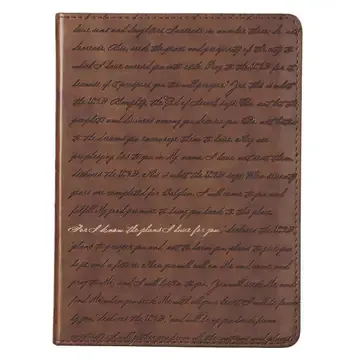 sons and daughters. Increase in number there; do not
decrease. Also, seek the peace and prosperity of the city to
which I have carried you into exile. Pray to the LORD for it,
because if it prospers, you too will prosper." Yes, this is what
the LORD Almighty, the God of Israel, says: "Do not let the
prophets and diviners among you deceive you. Do not listen to
the dreams you encourage them to have. They are
prophesying lies to you in my name. I have not sent them,"
declares the LORD. This is what the LORD says: "When seventy
years are completed for Babylon, I will come to you and
fulfill my good promise to bring you back to this place.
For I know the plans I have for you," declares the LORD,
"plans to prosper you and not to harm you, plans to give you
hope and a future. Then you will call on me and come and
pray to me, and I will listen to you. You will seek me and
find me when you seek me with all your heart. I will be found
by you," declares the LORD, "and will bring you back from
captivity. I will gather you from all the